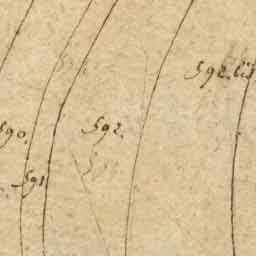 592.bis
592.
590.
591